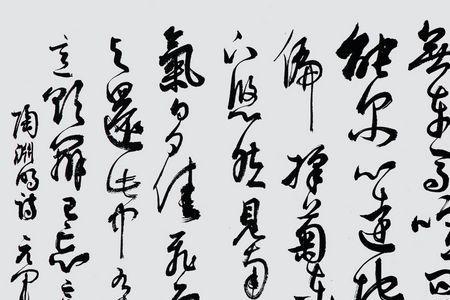 無車馬喧
能尔心遠地
偏採菊東
下悠然見南
氣日夕佳飛
与還此中有
意欲辯已忘
陶淵明詩